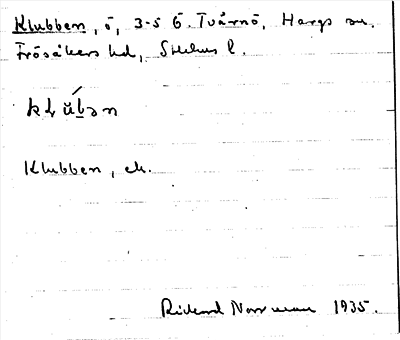 Klubben, ö, 3-5 6. Tvärnö, Hargs sn.
Frösåkers hd, Sthlms l.
kḷŭ́b̲ən
Klubben, ek.
Rickard Norrman 1935.